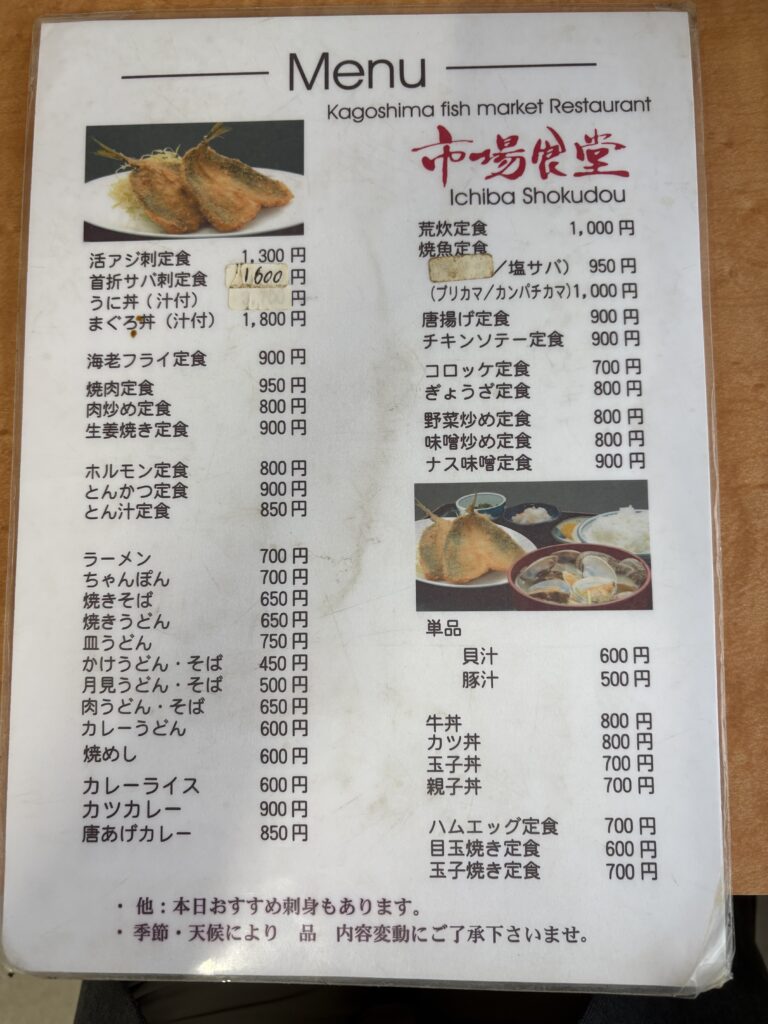 Menu
Kagoshima fish market Restaurant
市場食堂
Ichiba Shokudou
活アジ刺定食 1,300円
首折サバ刺定食 1600円
うに丼（汁付） 円
まぐろ丼（汁付） 1,800円
海老フライ定食 900円
焼肉定食 950円
肉炒め定食 800円
生姜焼き定食 900円
ホルモン定食 800円
とんかつ定食 900円
とん汁定食 850円
ラーメン 700円
ちゃんぽん 700円
焼きそば 650円
焼きうどん 650円
皿うどん 750円
かけうどん・そば 450円
月見うどん・そば 500円
肉うどん・そば 650円
カレーうどん 600円
焼めし 600円
カレーライス 600円
カツカレー 900円
唐あげカレー 850円
荒炊定食 1,000円
焼魚定食
／塩サバ） 950円
（ブリカマ／カンパチカマ）1,000円
唐揚げ定食 900円
チキンソテー定食 900円
コロッケ定食 700円
ぎょうざ定食 800円
野菜炒め定食 800円
味噌炒め定食 800円
ナス味噌定食 900円
単品
貝汁 600円
豚汁 500円
牛丼 800円
カツ丼 800円
玉子丼 700円
親子丼 700円
ハムエッグ定食 700円
目玉焼き定食 600円
玉子焼き定食 700円
・他：本日おすすめ刺身もあります。
・季節・天候により 品 内容変動にご了承下さいませ。